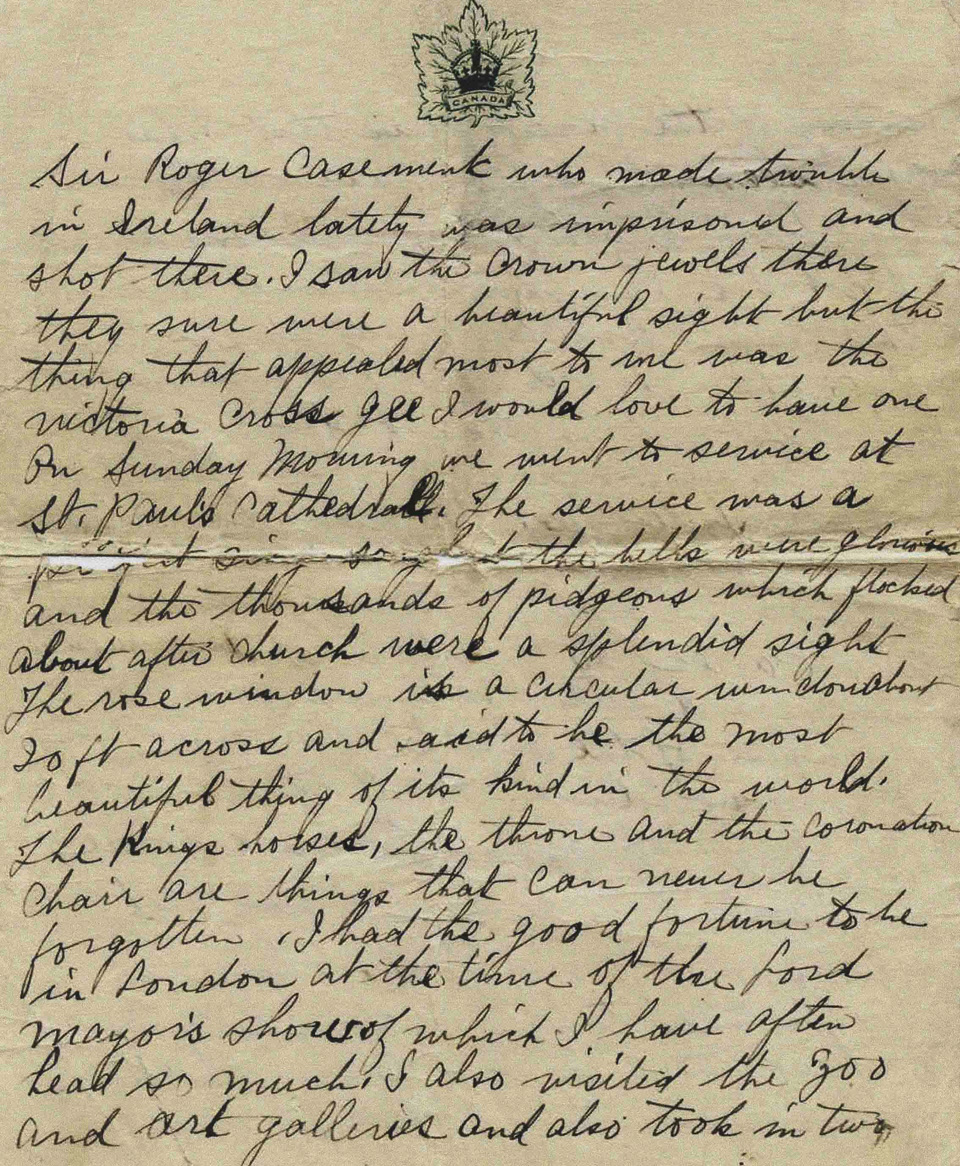 CANADA
Sir Roger Casement who made trouble
in Ireland lately was imprisond and
shot there. I saw the Crown jewels there
they sure were a beautiful sight but the
thing that appealed most to me was the
victoria Cross gee I would love to have one
On Sunday Morning we went to service at
St. Paul's Cathedrall. The service was a
the bells were glorious
and the thousands of pidgeons which flocked
about after church were a splendid sight
The rose window is a circular window about
20 ft across and said to be the most
beautiful thing of its kind in the world.
The Kings horses, the throne and the coronation
Chair are things that can never be
forgotten. I had the good fortune to be
in London at the time of the Lord
mayor's show of which I have often
head so much. I also visited the zoo
and art galleries and also took in two